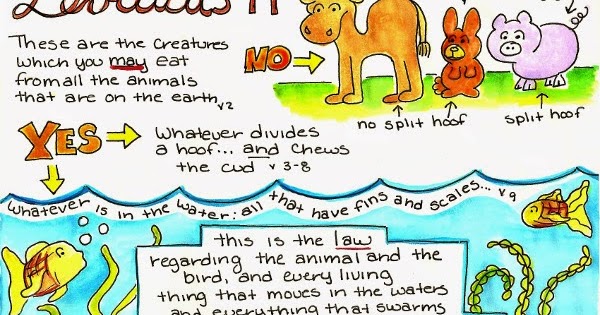 Leviticus 11
These are the creatures
which you may eat
from all the animals
that are on the earth v2
NO
no split hoof
split hoof
YES
Whatever divides
a hoof... and chews
the cud v 3-8
whatever is in the water: all that have fins and scales... v9
this is the law
regarding the animal and the
bird, and every living
thing that moves in the waters
and everything that swarms